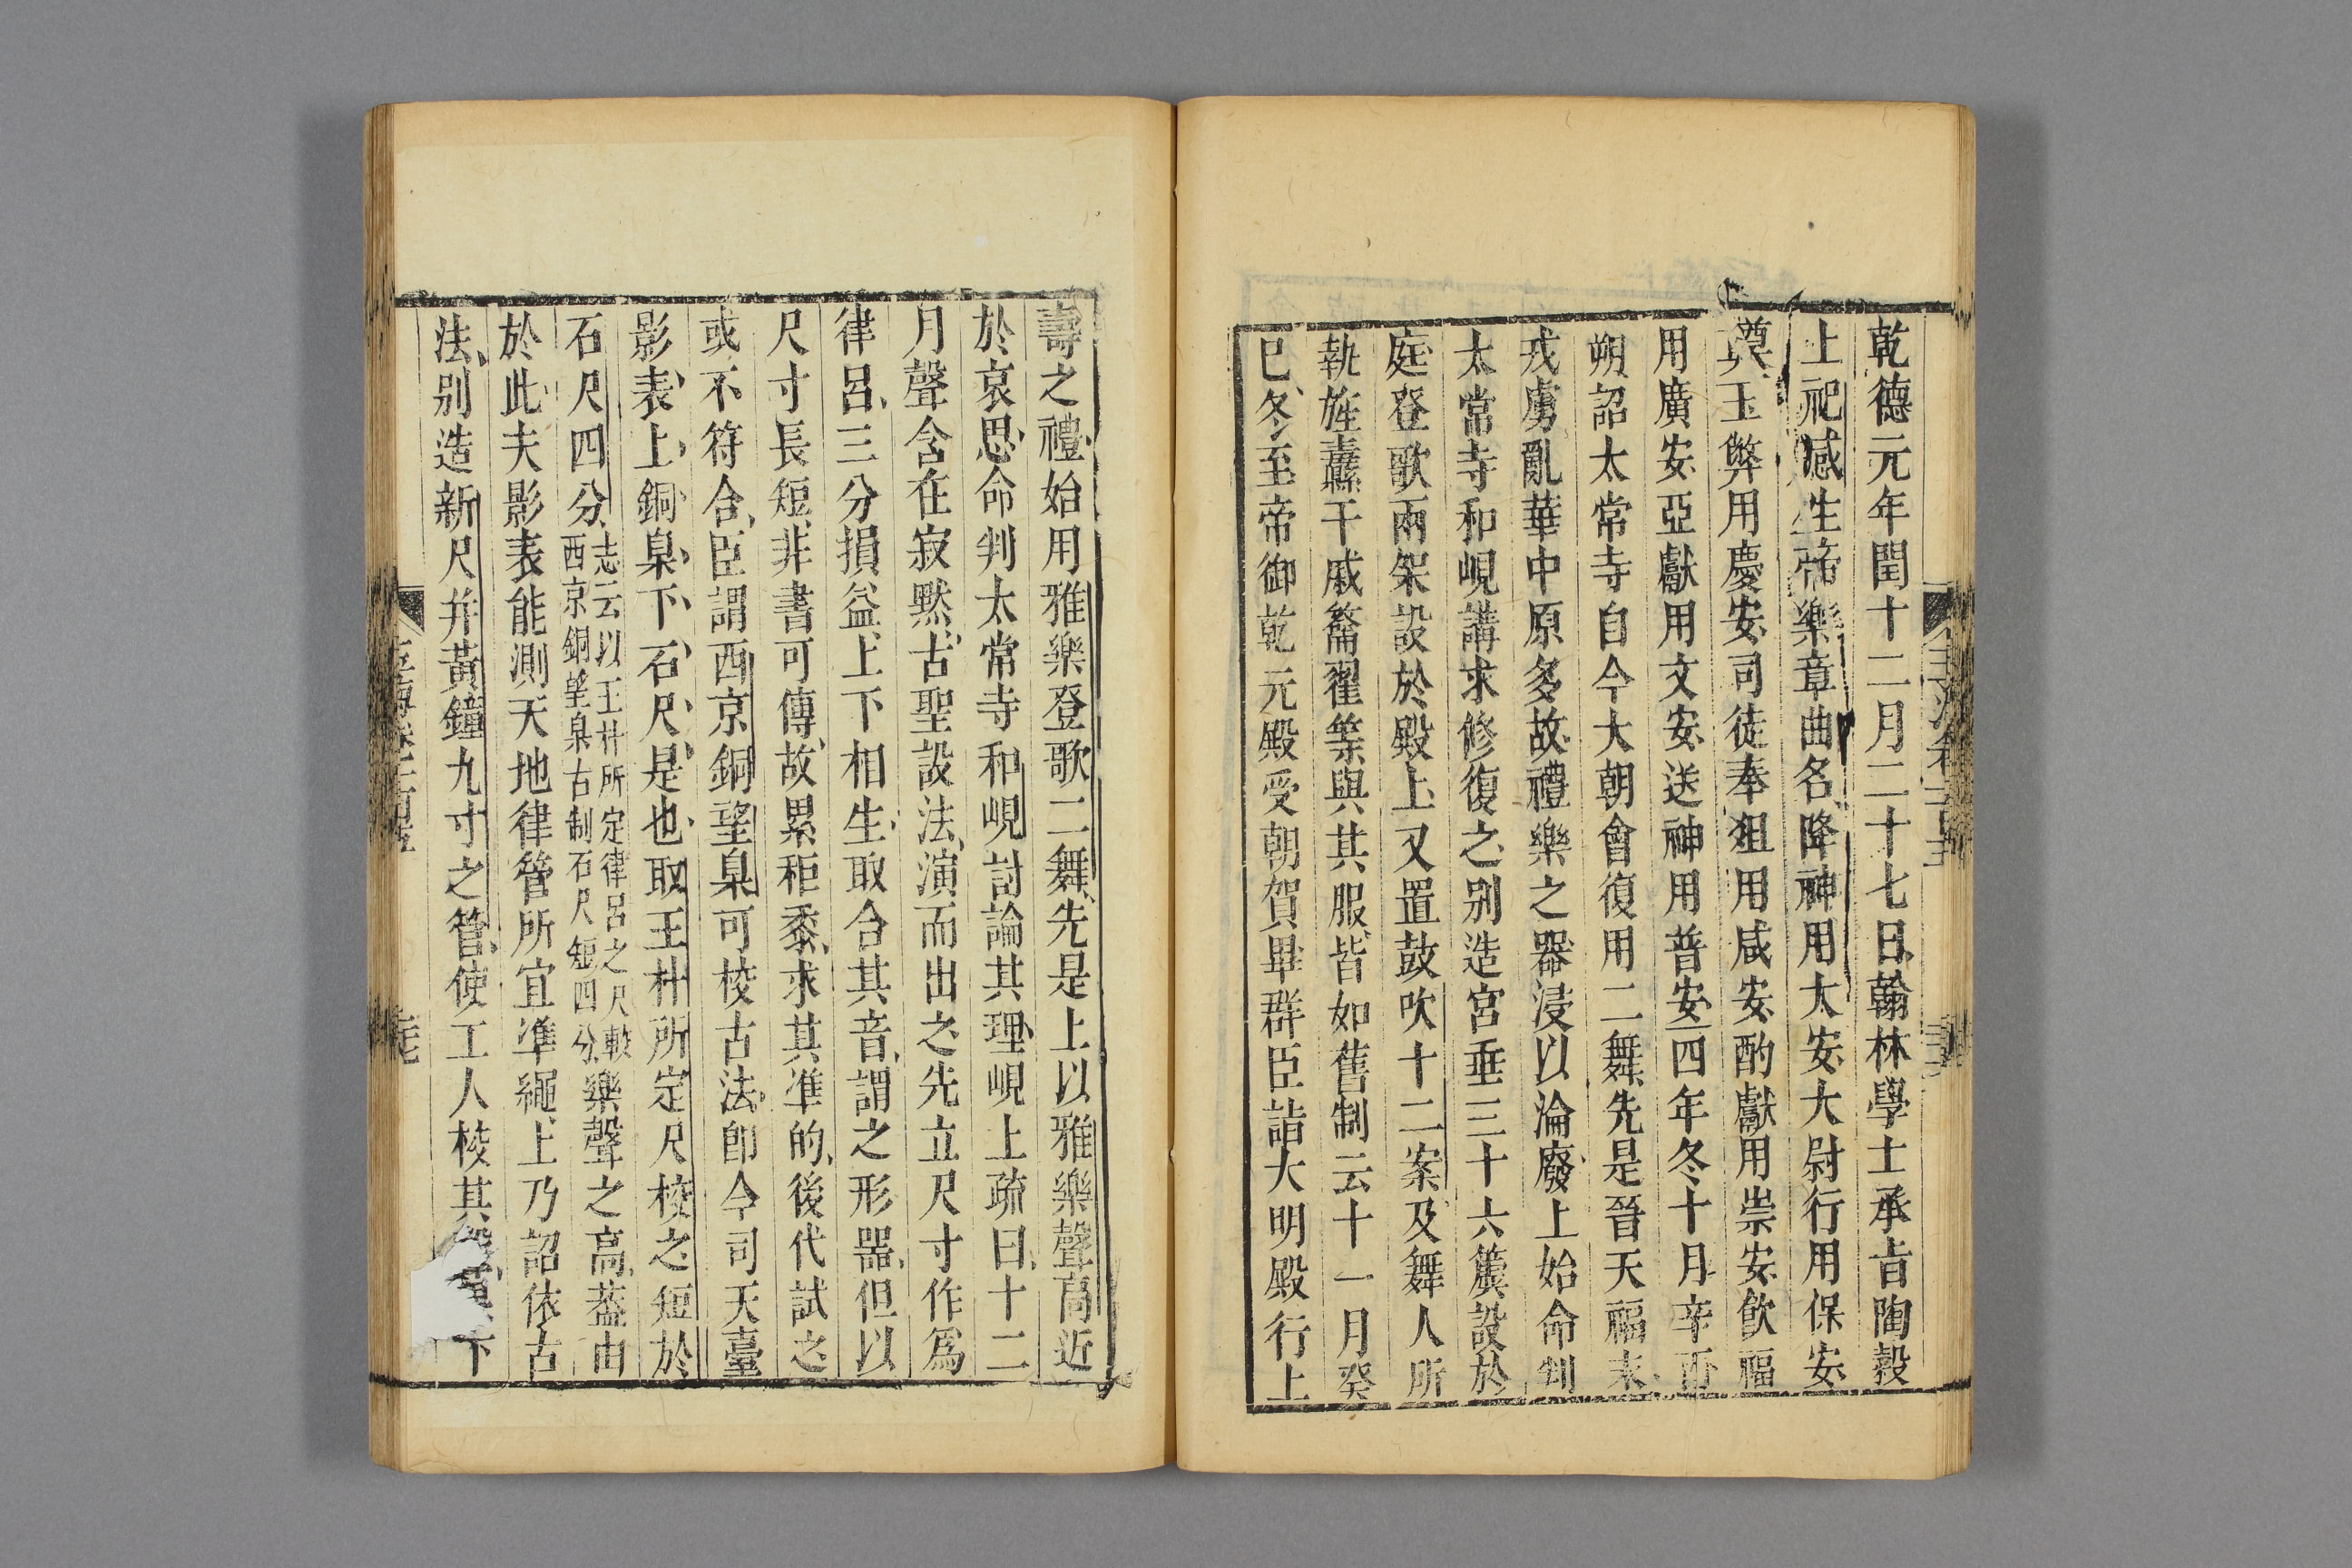 乾德元年閏十二月二十七日翰林學士承㫖陶穀
上祀感生帝樂章曲名降神用大安大尉行用保安
奠玉幣用慶安司徒奉俎用咸安酌獻用崇安飲福
用廣安亞獻用文安送神用普安四年冬十月辛酉
朔詔太常寺自今大朝會復用二舞先是晉天福末
戎虜亂華中原多故禮樂之器浸以淪廢上始命判
太常寺和峴講求修復之别造宮垂三十六簴設於
庭登歌兩架設於殿上又置鼓吹十二案及舞人所
執旌纛干戚籥翟等與其服皆如舊制云十一月癸
巳冬至帝御乾元殿受朝賀畢群臣詣大明殿行上
壽之禮始用雅樂登歌二舞先是上以雅樂聲高近
於哀思命判太常寺和峴討論其理峴上疏曰十二
月聲含在寂默古聖設法演而出之先立尺寸作爲
律呂三分損益上下相生取合其音謂之形器但以
尺寸長短非書可傳故累秬黍求其準的後代試之
或不符合臣謂西京銅望臬可校古法卽今司天臺
影表上銅臬下石尺是也取王朴所定尺校之短於
石尺四分志云以王朴所定律呂之尺較西京銅望臬古制石尺短四分樂聲之高葢由
於此夫影表能測天地律管所宜準繩上乃詔依古
法别造新尺并黃鐘九寸之管使工人校其下